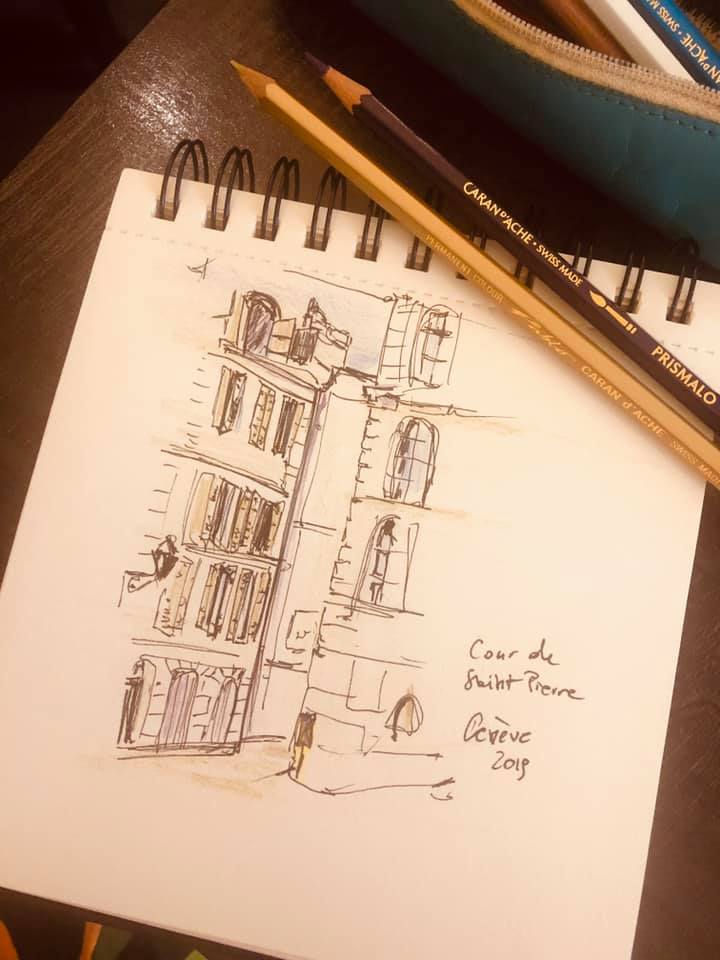 CARAN D'ACHE • SWISS M
CARAN D'ACHE • SWISS MADE
PRISMALO
PERMANENT COLOUR Pablo CARAN d'ACHE SWISS MADE
Cour de
Saint Pierre
Genève
2019